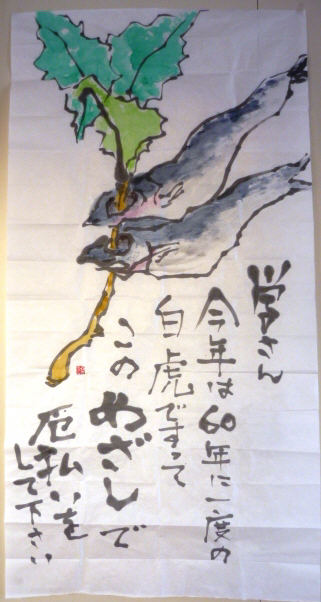 学さん
今年は60年に一度の
白虎ですって
この めざしで
厄払いを
して下さい